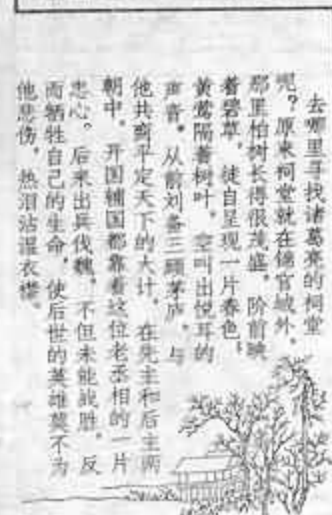 去哪里寻找诸葛亮的祠堂
呢?原来祠堂就在锦官城外,
那里柏树长得很茂盛。阶前映
着碧草,徒自呈现一片春色,
黄莺隔着树叶,空叫出悦耳的
声音。从前刘备三顾茅庐,与
他共商平定天下的大计,在先主和后主两
朝中,开国辅国都靠着这位老丞相的一片
忠心。后来出兵伐魏,不但未能战胜,反
而牺牲自己的生命,使后世的英雄莫不为
他悲伤,热泪沾湿衣襟。